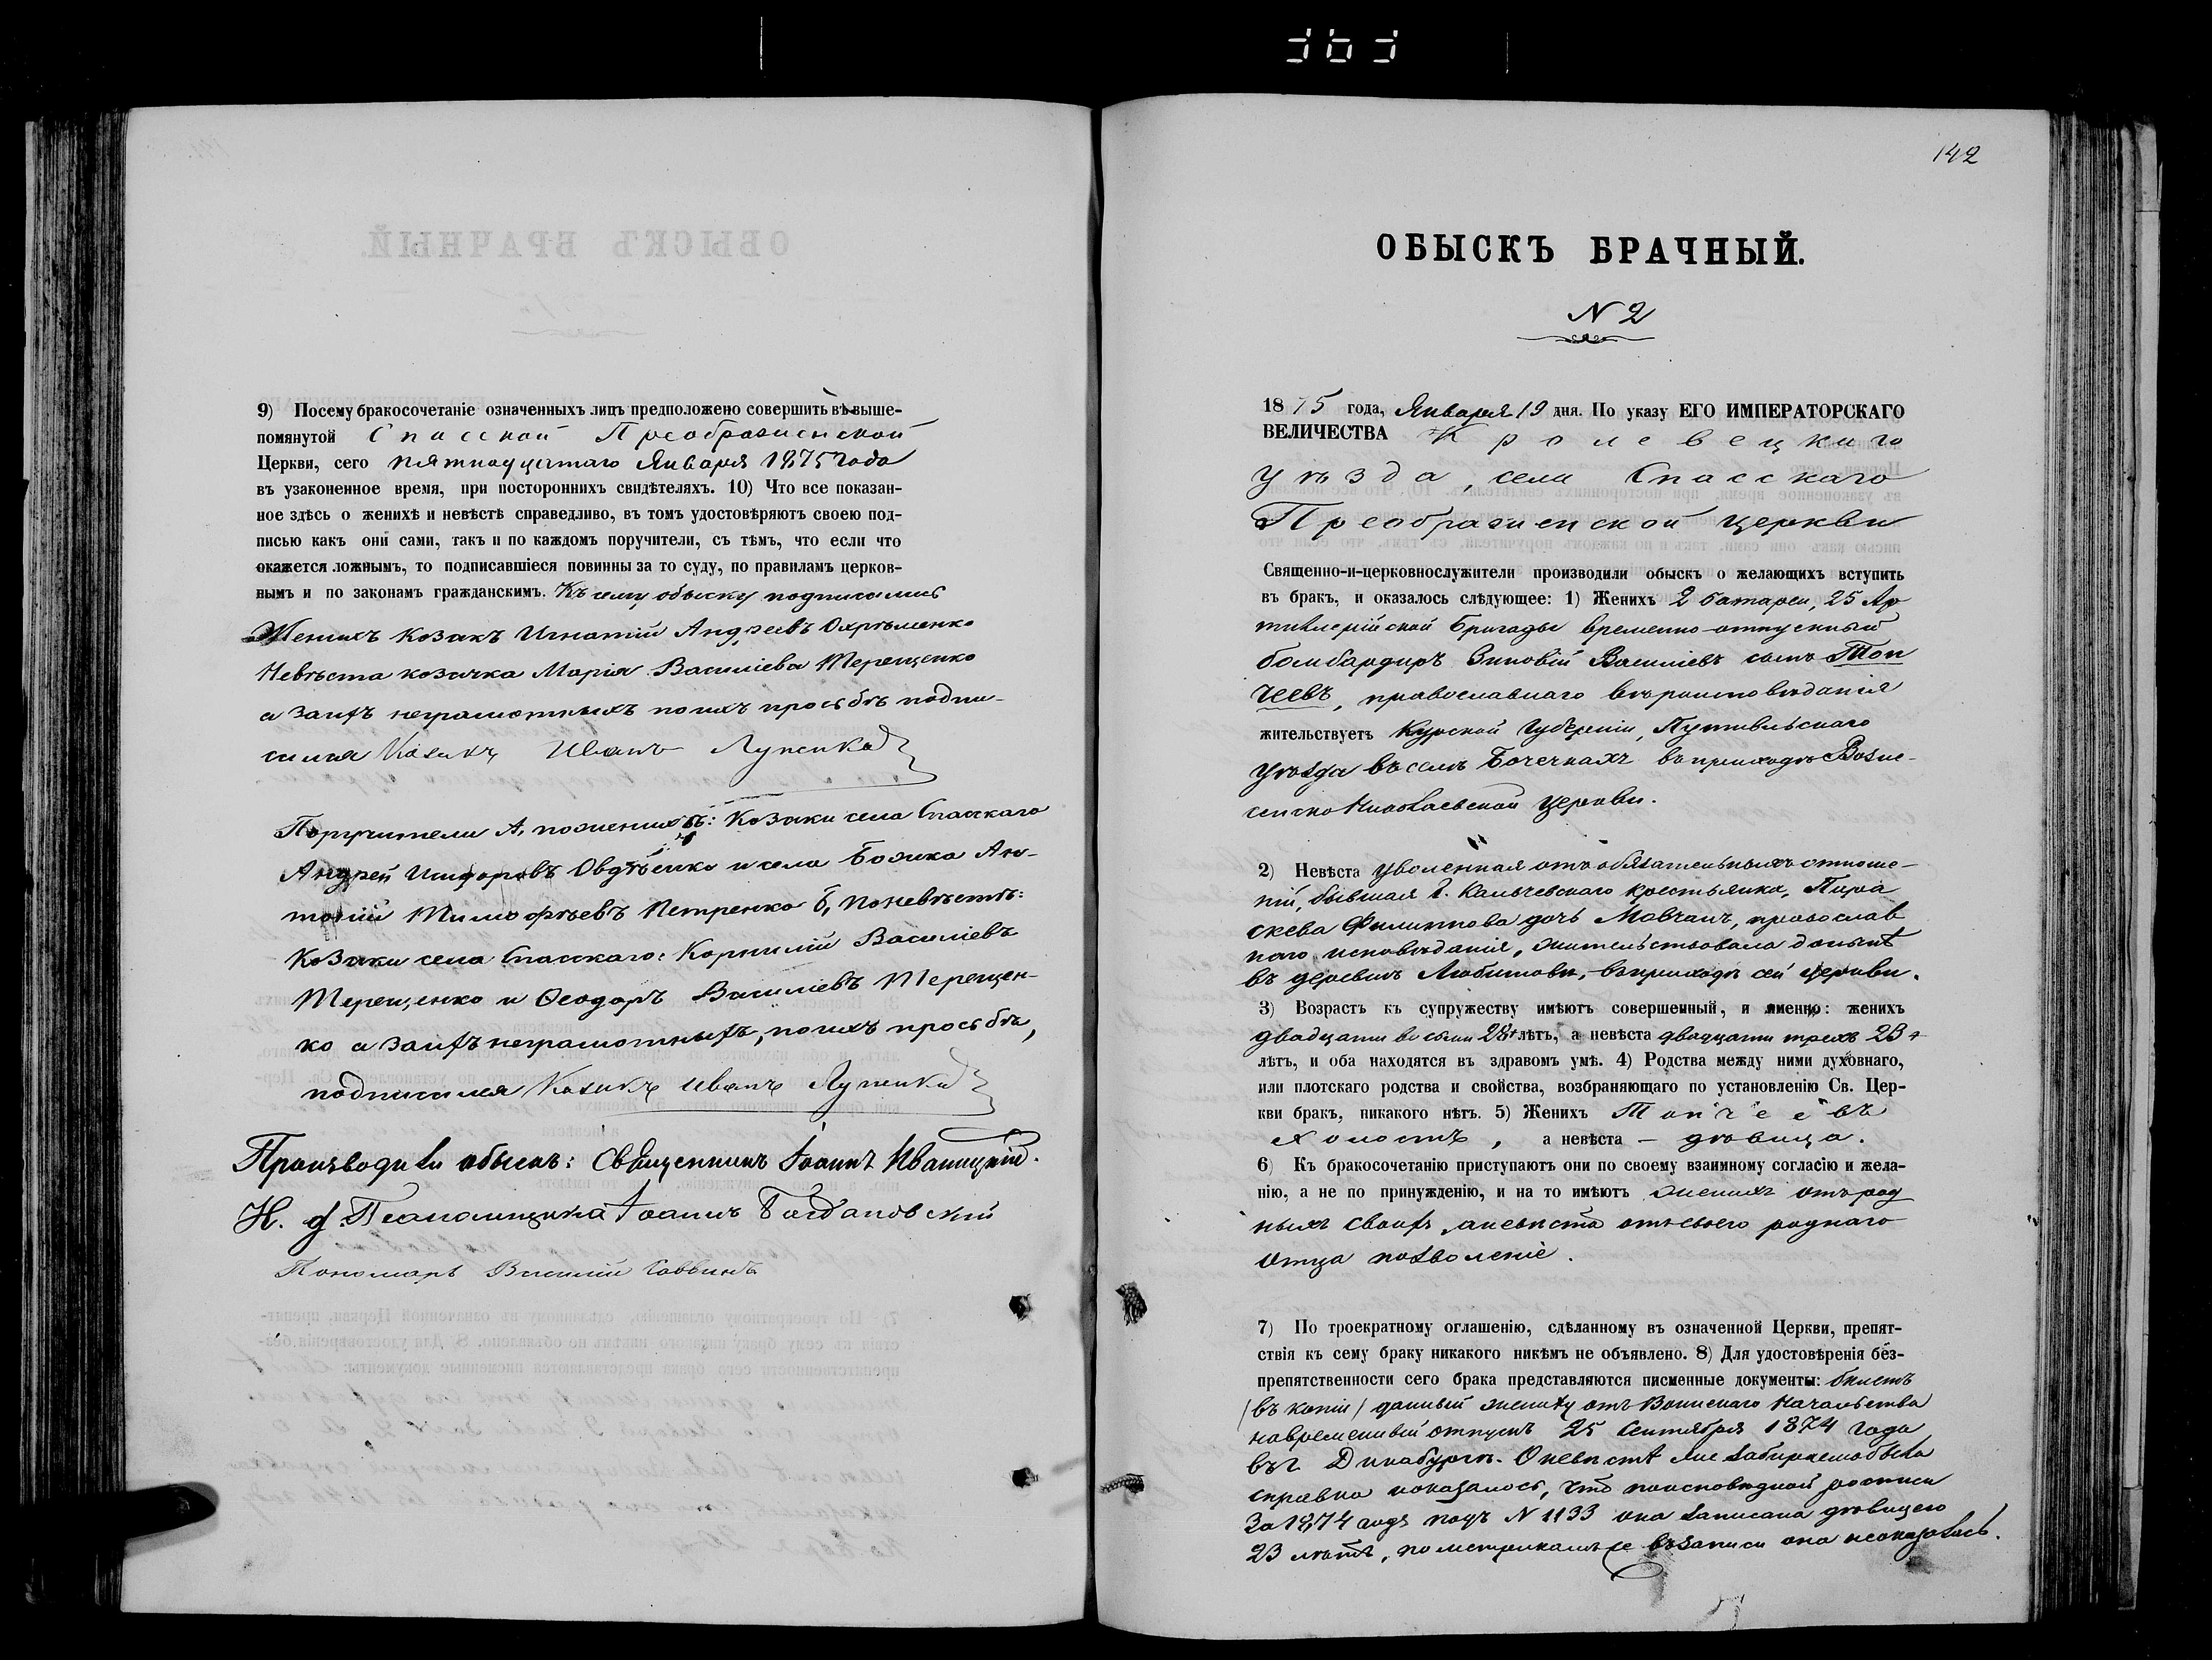 9) Посему бракосочетаніе означенныхъ лицъ предположено совершить въ выше-
помянутой Спасской Преображенской
Церкви, сего пятнадцатаго Января 1875 года
въ узаконенное время, при постороннихъ свидѣтеляхъ. 10) Что все показан-
ное здѣсь о женихѣ и невѣстѣ справедливо, въ томъ удостовѣряютъ своею под-
писью какъ они сами, такъ и по каждомъ поручители, съ тѣмъ, что если что
окажется ложнымъ, то подписавшіеся повинны за то суду, по правиламъ церков-
нымъ и по законамъ гражданскимъ. Къ сему обыску подписались
Женихъ козакъ Игнатій Андреевъ Охрѣменко
Невѣста козачка Марія Василіева Терещенко
а за нихъ неграмотныхъ по ихъ просьбѣ подпи-
сался Козакъ Иванъ Лупенко
Поручители А, по женихѣ: Козаки села Спаскаго
Андрей Исидоровъ Овдѣенко и села Божка Ан-
тоній Тимофѣевъ Петренко Б, по невѣстѣ:
Козаки села Спасскаго: Корнилій Василіевъ
Терещенко и Ѳеодоръ Василіевъ Терещен-
ко а за нихъ неграмотныхъ, по ихъ просьбѣ,
подписался Козакъ Иванъ Лупенко
Производили обыскъ: Священникъ Іоаннъ Иваницкій.
И. д. Псаломщика Іоаннъ Богдановскій
Пономарь Василій Саввинъ
142
ОБЫСКЪ БРАЧНЫЙ.
N 2
1875 года, Января 19 дня. По указу ЕГО ИМПЕРАТОРСКАГО
ВЕЛИЧЕСТВА Кролевецкаго
уѣзда, села Спасскаго
Преображенской церкви
Священно-и-церковнослужители производили обыскъ о желающихъ вступить
въ бракъ, и оказалось слѣдующее: 1) Женихъ 2 батареи, 25 Ар
тилерійской Бригады временно-отпускный
бомбардиръ Зиновій Василіевъ сынъ Топ
чеевъ, православнаго вѣроисповѣданія
жительствуетъ Курской Губерніи, Путивльскаго
уѣзда въ селѣ Бочечкахъ въ приходѣ Возне-
сенско Николаевской церкви.
2) Невѣста уволенная отъ обязательныхъ отноше-
ній, бывшая г. Кальчевскаго крестьянка, Пара
скева Филиппова дочь Мовчанъ, православ
наго исповѣданія, жительствовала донынѣ
въ деревнѣ Любитовкѣ, въ приходѣ сей церкви.
3) Возрастъ къ супружеству имѣютъ совершенный, и именно: женихъ
двадцати восьми 28 лѣтъ, а невѣста двадцати трехъ 23
лѣтъ, и оба находятся въ здравомъ умѣ. 4) Родства между ними духовнаго,
или плотскаго родства и свойства, возбраняющаго по установленію Св. Цер-
кви бракъ, никакого нѣтъ. 5) Женихъ Топчеевъ
холостъ, а невѣста — дѣвица.
6) Къ бракосочетанію приступаютъ они по своему взаимному согласію и жела-
нію, а не по принужденію, и на то имѣютъ женихъ отъ род
ныхъ своихъ, а невѣста отъ своего роднаго
отца позволеніе.
7) По троекратному оглашенію, сдѣланному въ означенной Церкви, препят-
ствія къ сему браку никакого никѣмъ не объявлено. 8) Для удостовѣренія без-
препятственности сего брака представляются писменные документы: билетъ
(въ копіи) данный жениху отъ Воинскаго Начальства
на временный отпускъ 25 Сентября 1874 года
въ г. Динабургѣ. О невѣстѣ
справка показалось, что по исповѣдной росписи
за 1874 годъ подъ N 1133 она записана дѣвицею
23 лѣтъ, по метрикамъ въ записи она не оказалась.